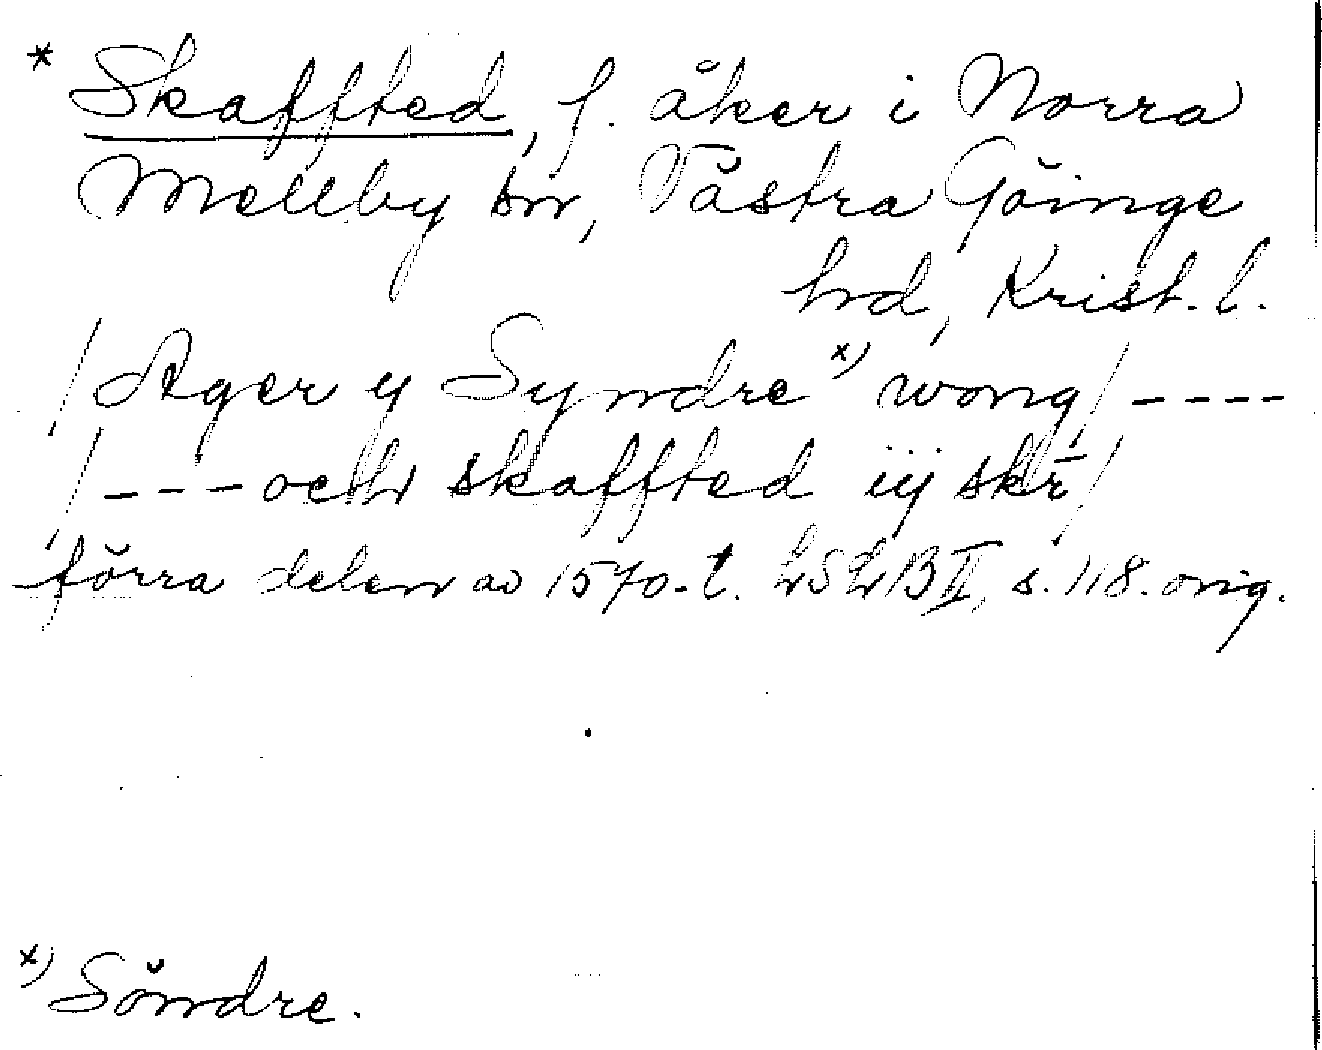 * Skaffted, f. åker i Norra
Mellby sn, Västra Göinge
hrd, Krist. l.
/Ager y Syndre x) wong/ ----
/ --- och skaffted iij skr̄/
förra delen av 1570-t. LSLB II, s. 118. orig.
x) Söndre.